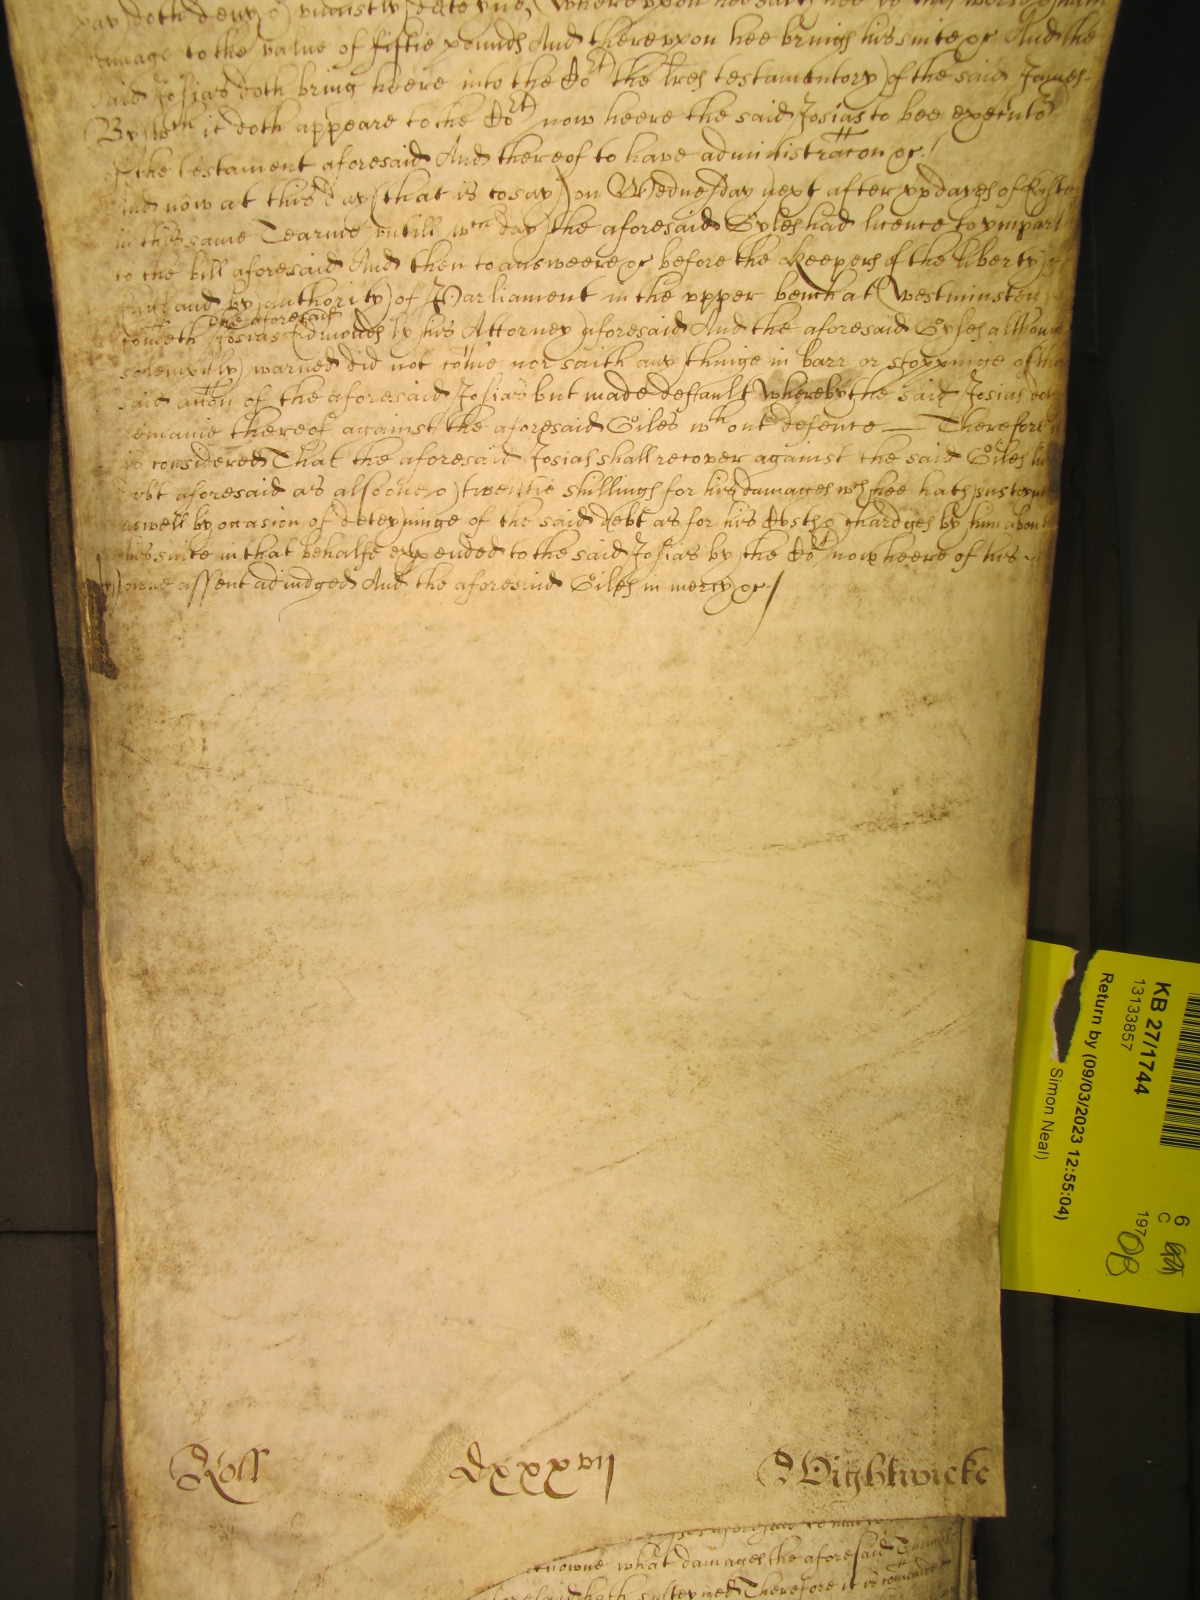 pay doth deny & uniustly deteyne, Whereupon hee saith hee is the worse & hath
damage to the value of fiftie pounds And thereupon hee brings his suite &c And the
said Josias doth bring heere into the Cort the lres testamentory of the said James
By wch it doth appeare to the Cort now heere the said Josias to bee executor
of the testament aforesaid And thereof to have administracon &c
And now at this day (that is to say) on Wednesday next after xv dayes of Easter
in this same Tearme untill wch day the aforesaid Gyles had licence to imparle
to the bill aforesaid And then to answeere &c before the Keepers of the liberty of
England by authority of Parliament in the upper bench at Westminster
cometh the aforesaid Josias Edmonds by his Attorney aforesaid And the aforesaid Gyles although
solempnly warned did not come nor saith any thinge in barr or stoppinge of the
said accon of the aforesaid Josias but made default Whereby the said Josias doth
remaine thereof against the aforesaid Giles wthout defence — Therefore it
is considered That the aforesaid Josias shall recover against the said Giles his
debt aforesaid as alsoe twentie shillings for his damages wch hee hath susteyned
aswell by occasion of deteyninge of the said debt as for his Costs & chardges by him about
his suite in that behalfe expended to the said Josias by the Cort now heere of his
owne assent adiudged And the aforesaid Giles in mercy &c/
Roll dxxxvii Wightwicke
knowne what damages the aforesaid
aforesaid hath susteyned Therefore it is
KB 27/1744
13133857
Return by (09/03/2023 12:55:04)
Simon Neal)
6
C
197